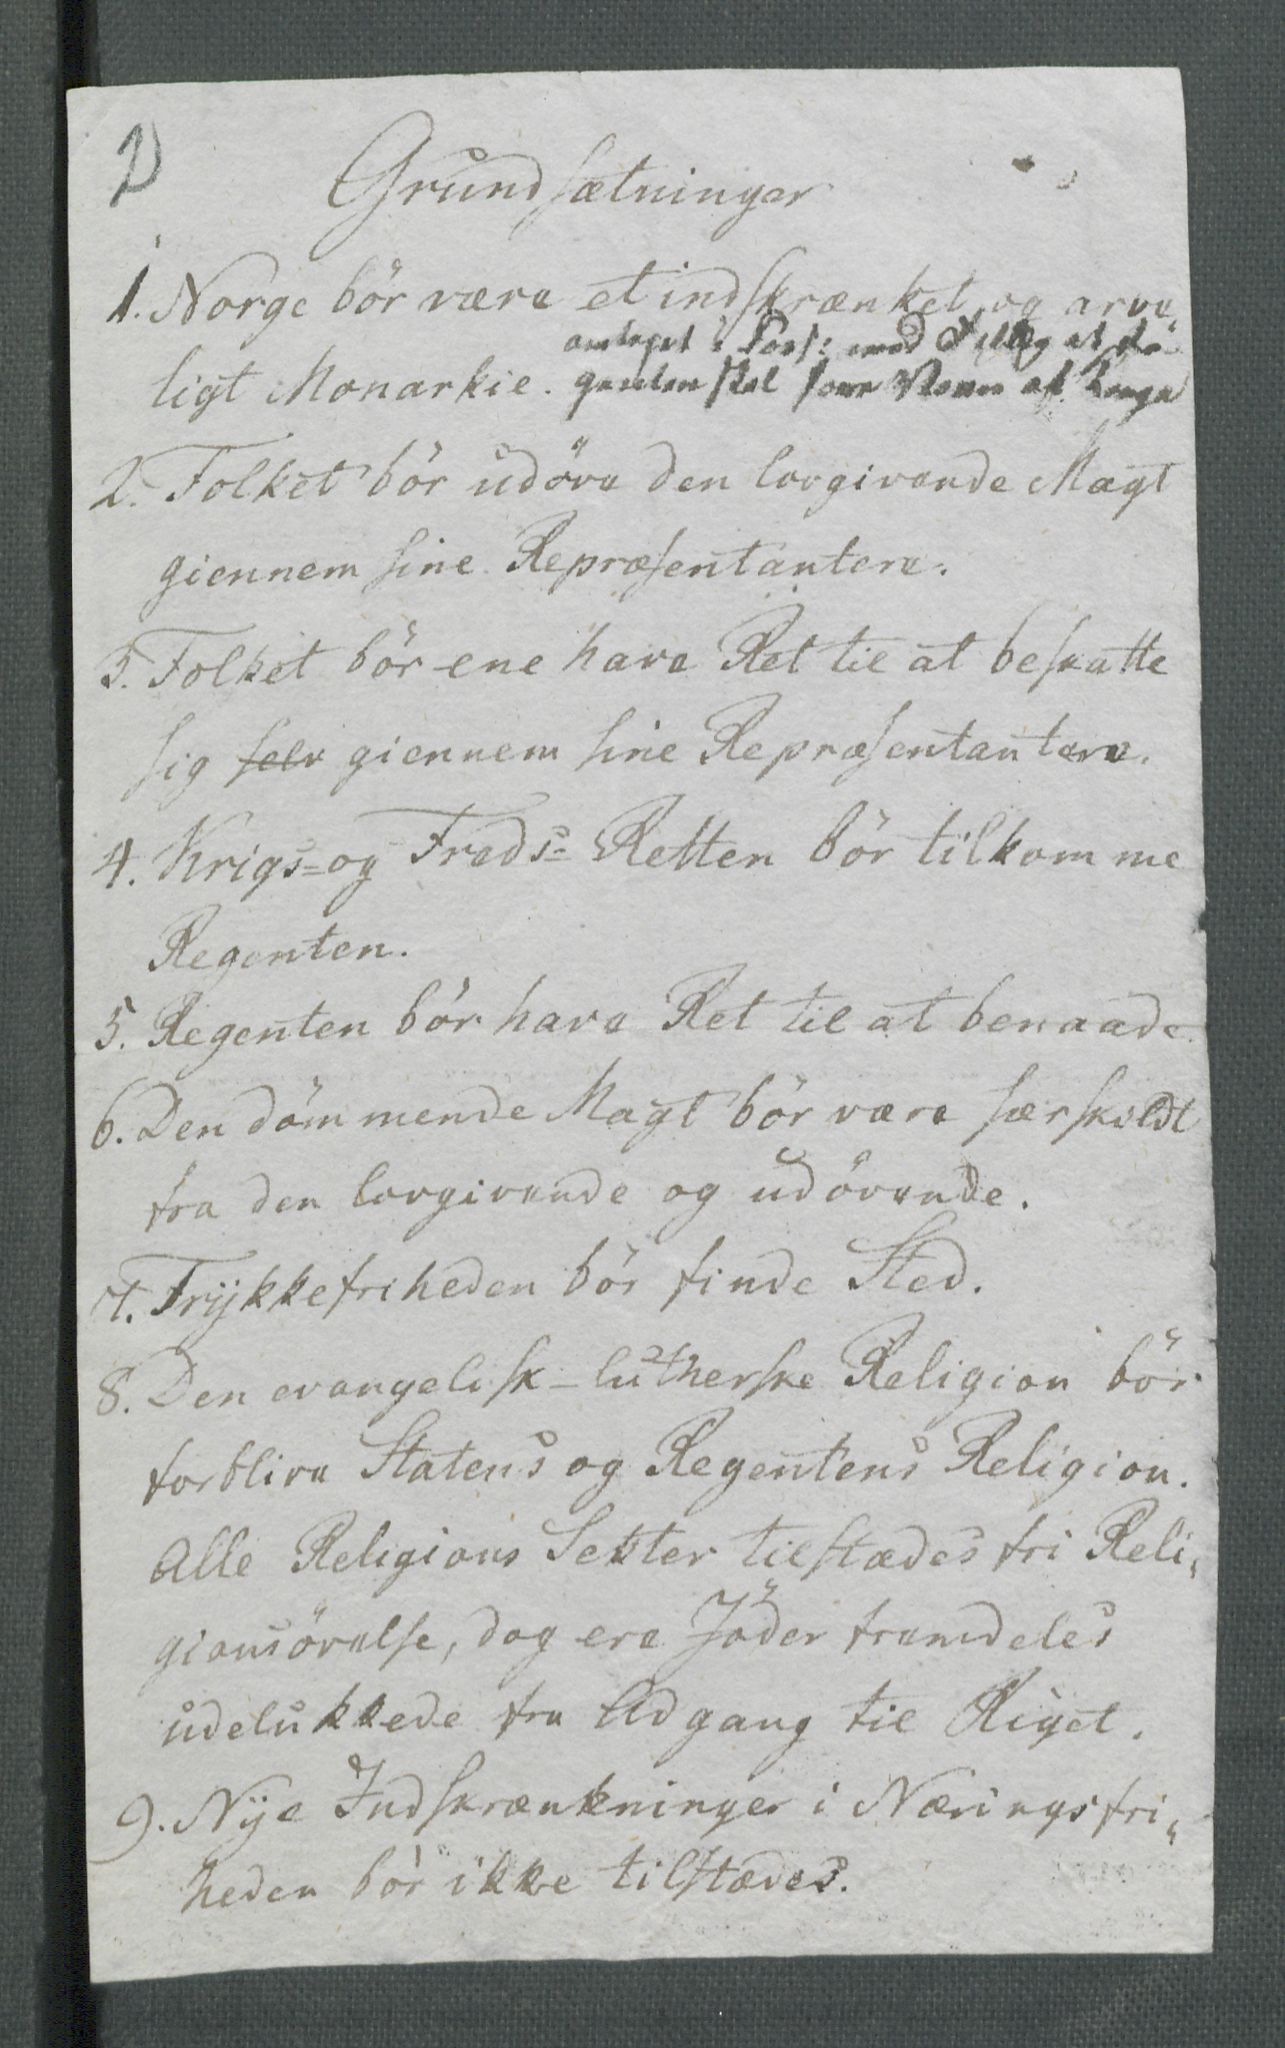 D
Grundsætninger
1. Norge bör være et indskrænket og arve„
ligt Monarkie.
antaget i Pors: med Tillæg at Re-
genten skal føre Navn af Konge
2. Folket bör udöve den lovgivende Magt
giennem sine Repræsentantere.
3. Folket bör ene have Ret til at beskatte
sig selv giennem sine Repræsentantere.
4. Krigs= og Freds= Retten bör tilkomme
Regenten.
5. Regenten bör have Ret til at benaade.
6. Den dömmende Magt bör være særskildt
fra den lovgivende og udövende.
7. Trÿkkefriheden bör finde Sted.
8. Den evangelisk-lutherske Religion bör
forblive Statens og Regentens Religion.
Alle Religions Sekter tilstædes fri Reli„
gionsövelse, dog ere Jöder fremdeles
udelukkede fra Adgang til Riget.
9. Nÿe Indskrænkninger i Næringsfri„
heden bör ikke tilstædes.